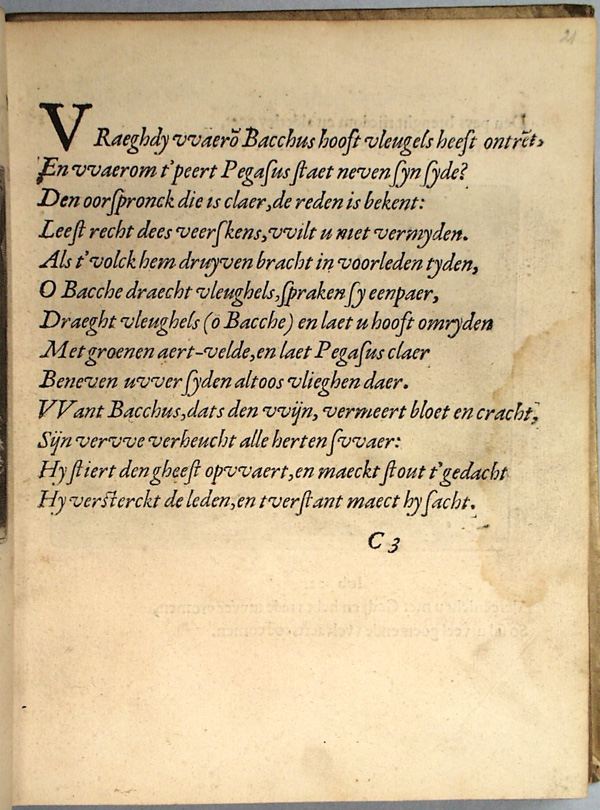 21
VRaeghdy vvaerõ Bacchus hooft vleugels heeft ontrẽt,
En vvaerom t'peert Pegaſus ſtaet neven ſyn ſyde?
Den oorſpronck die is claer, de reden is bekent:
Leeſt recht dees veerſkens, vvilt u niet vermyden.
Als t'volck hem druyven bracht in voorleden tyden,
O Bacche draecht vleughels, ſpraken ſy eenpaer,
Draeght vleughels (o Bacche) en laet u hooft omryden
Met groenen aert-velde, en laet Pegaſus claer
Beneven uvver ſyden altoos vlieghen daer.
VVant Bacchus, dats den vvijn, vermeert bloet en cracht,
Sijn vervve verheucht alle herten ſvvaer:
Hy ſtiert den gheeſt opvvaert, en maeckt ſtout t'gedacht
Hy verſterckt de leden, en tverſtant maect hy ſacht.
C 3